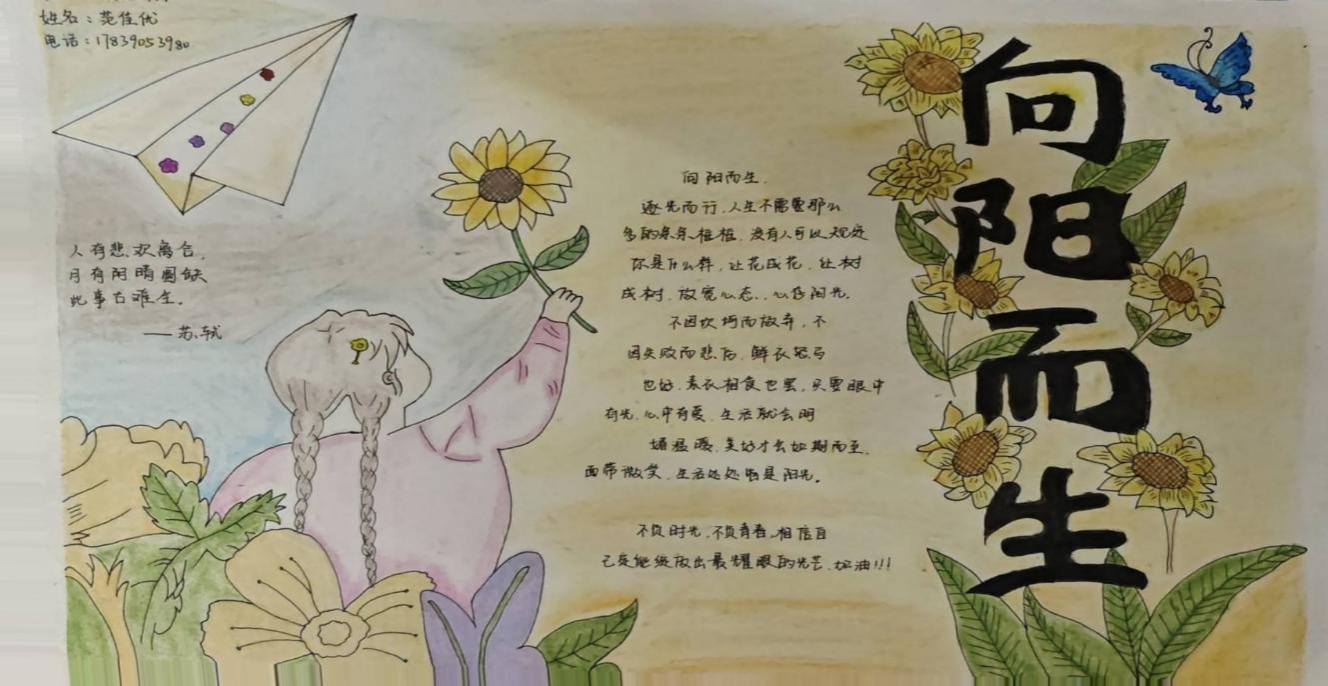 姓名：范佳优
电话：17839053980
人有悲欢离合，
月有阴晴圆缺
此事古难全。
——苏轼
向阳而生.
逐光而行，人生不需要那么
多的条条框框，没有人可以规定
你是什么样，让花成花，让树
成树，放宽心态，心存阳光，
不因坎坷而放弃，不
因失败而悲伤，鲜衣怒马
也好，素衣粗食也罢，只要眼中
有光，心中有爱，生活就会明
媚温暖，美好才会如期而至，
面带微笑，生活处处皆是阳光。
不负时光，不负青春，相信自
己定能绽放出最耀眼的光芒，加油!!!
向
阳
而
生